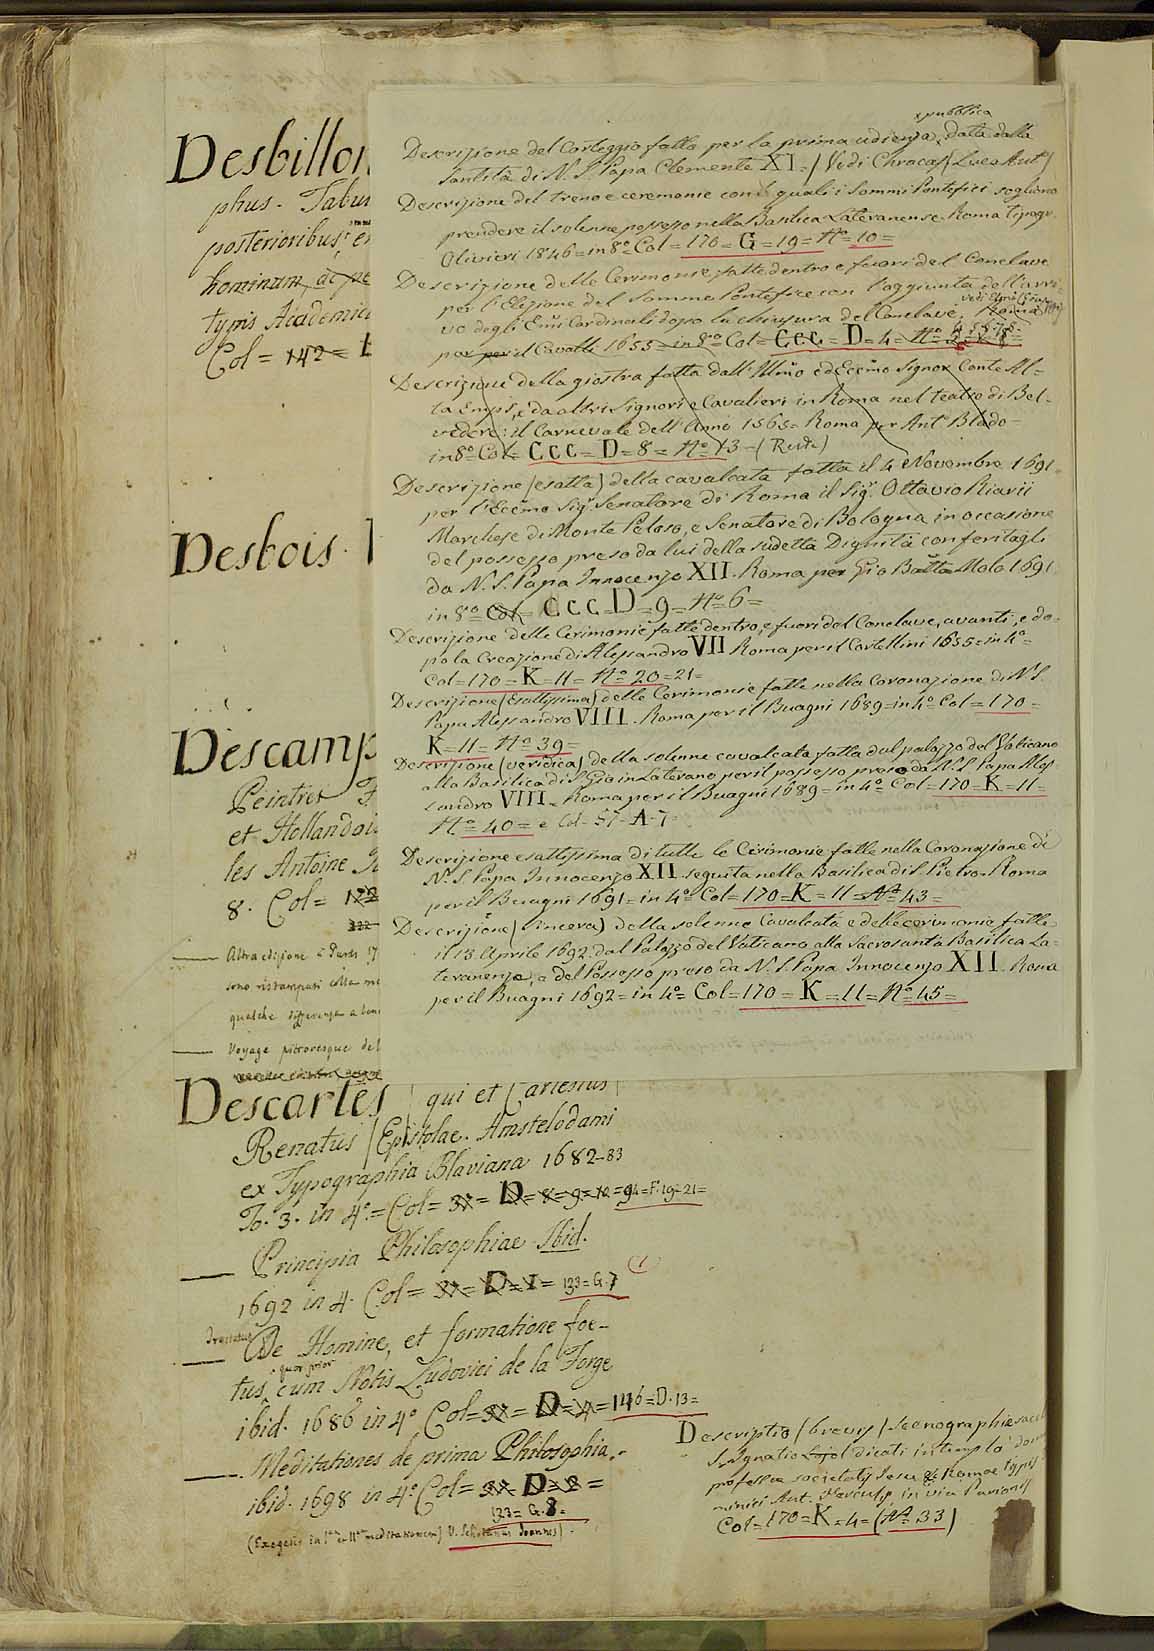 Desbillon
phus. Tabu
posterioribus, e
hominum, ac pe
typis Academic
Col = 142 =
Desbois.
Descamp
Peintres F
et Hollandai
les Antoine
8. Col = 122
Altra edizione a Paris 17
sono ristampati colla me
qualche differenza
Voyage pittoresque de
xpubblica
Descrizione del Corteggio fatto per la prima udienza, data dalla
Santità di N. S. Papa Clemente XI = / Vedi Chracas / Luca Ant.
Descrizione del treno e ceremonie con le quali i Sommi Pontefici sogliono
prendere il solenne possesso nella Basilica Lateranense. Roma tipogr.
Olivieri 1846 = in 8º Col = 170 = G = 19 = Nº 10 =
Descrizione delle Cerimonie fatte dentro e fuori del Conclave
per l'Elezione del Sommo Pontefice con l'aggiunta dell'arri-
vo degli Emi Cardinali dopo la chiusura del Conclave. Roma
per il Cavalli 1655 = in 8º Col = CCC = D = 4 = Nº
Descrizione della giostra fatta dall' Illmo ed Eccmo Signor Conte Al-
ta Emps, e da altri Signori e Cavalieri in Roma nel teatro di Bel-
vedere: il Carnevale dell'Anno 1565 = Roma per Antº Blado -
in 8º Col = CCC = D = 8 = Nº 13 -
Descrizione (esatta) della cavalcata fatta il 4 Novembre 1691.
per l'Eccmo Sigr Senatore di Roma il Sigr. Ottavio Riarii
Marchese di Monte Peloso, e Senatore di Bologna in occasione
del possesso preso da lui della sudetta Dignità conferitagli
da N. S. Papa Innocenzo XII. Roma per Gio Batta Molo 1691
in 8º Col = CCC = D = 9 = Nº 6 =
Descrizione delle Cerimonie fatte dentro, e fuori del Conclave, avanti, e do-
po la Creazione di Alessandro VII Roma per il Cartellini 1655 = in 4º =
Col = 170 = K = 11 = Nº 20 = 21 =
Descrizione (Esattissima) delle Cerimonie fatte nella Coronazione di N. S.
Papa Alessandro VIII. Roma per il Buagni 1689 = in 4º Col = 170 =
K = 11 = Nº 39 =
Descrizione (veridica) della solenne cavalcata fatta dal palazzo del Vaticano
alla Basilica di S. Gio in Laterano per il possesso preso da N. S. Papa Ales-
sandro VIII. Roma per il Buagni 1689 = in 4º Col = 170 = K = 11 =
Nº 40 = e Col = 57 = A = 7 =
Descrizione esattissima di tutte le Cerimonie fatte nella Coronazione di
N. S. Papa Innocenzo XII. seguita nella Basilica di S. Pietro. Roma
per il Buagni 1691 = in 4º Col = 170 = K = 11 = Nº 43 =
Descrizione (sincera) della solenne Cavalcata e delle cerimonie fatte
il 13 Aprile 1692. dal Palazzo del Vaticano alla Sacrosanta Basilica La-
teranense, e del Possesso preso da N. S. Papa Innocenzo XII. Roma
per il Buagni 1692 = in 4º Col = 170 = K = 11 = Nº 45 =
Descartes / qui et Cartesius /
Renatus / Epistolae. Amstelodami
ex Typographia Blaviana 1682-83
To. 3. in 4º = Col = 31 = D = 8 = 9 = 10 = 94 = F. 19 = 21 =
Principia Philosophiae Ibid.
1692 in 4. Col = 31 = D = 1 = 133 = G. 7
Tractatus
De Homine, et formatione foe-
quor prior
tus, cum Notis Ludovici de la Forge
ibid. 1686 in 4º Col = 31 = D = 4 = 146 = D. 13 =
Meditationes de prima Philosophia.
ibid. 1698 in 4º Col = 31 = D = 2 =
133 = G. 8 =
(Exegesis in Iam et IIam meditationem) V. Schotanus Joannes).
Descriptio / brevis / Scenographiae
S. Ignatio dicati in templo
professae societatis Jesu Romae typis
minici Ant. Herculis in via Parionis
Col = 170 = K = 4 = (Nº 33)